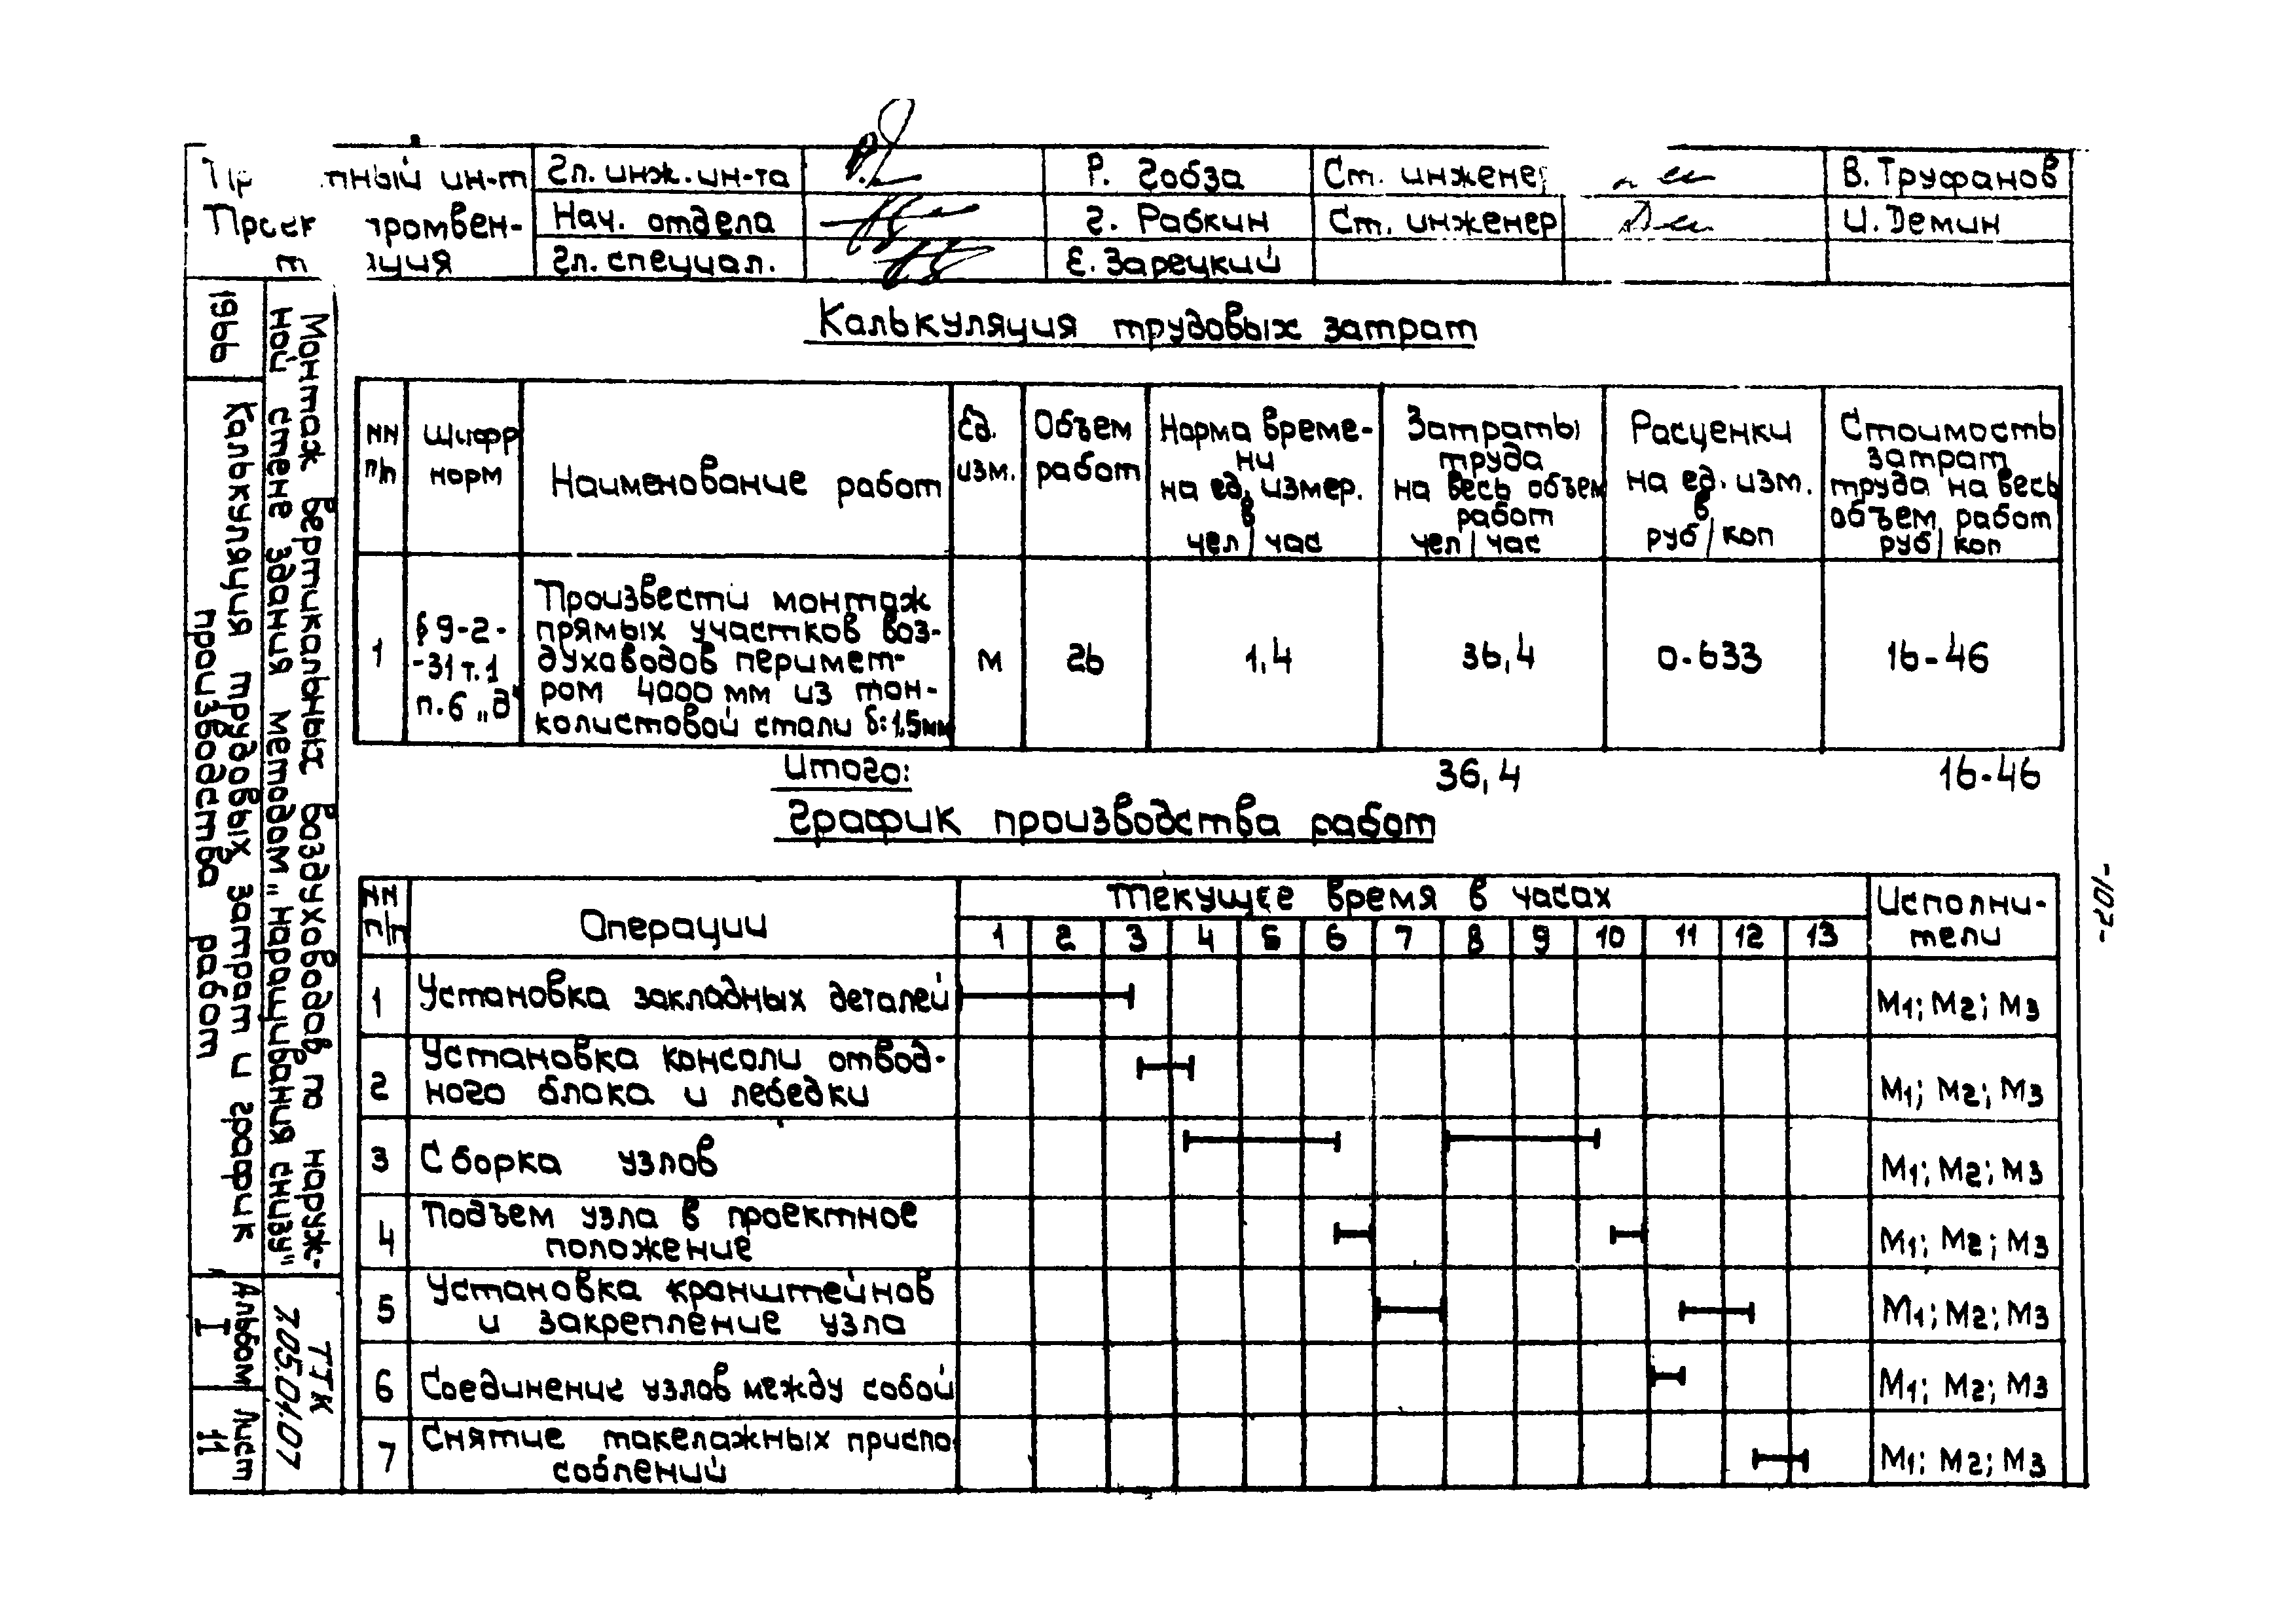 тный ин-т
Гл. инж. ин-та
Р. Гобза
Ст. инженер
В. Труфанов
Нач. отдела
Г. Рабкин
Ст. инженер
И. Демин
Гл. специал.
Е. Зарецкий
Калькуляция трудовых затрат
NN
п/п
Шифр
норм
Наименование работ
Ед.
изм.
Объем
работ
Норма време-
ни
на ед. измер.
в
чел/час
Затраты
труда
на весь объем
работ
чел/час
Расценки
на ед. изм.
в
руб/коп
Стоимость
затрат
труда на весь
объем работ
руб/коп
1
§9-2-
-31 т.1
п.6 „д"
Произвести монтаж
прямых участков воз-
духоводов перимет-
ром 4000 мм из тон-
колистовой стали δ:1,5мм
м
26
1,4
36,4
0-633
16-46
Итого:
36,4
16-46
График производства работ
NN
п/п
Операции
Текущее время в часах
Исполни-
тели
1 2 3 4 5 6 7 8 9 10 11 12 13
1
Установка закладных деталей
М1; М2; М3
2
Установка консоли отвод-
ного блока и лебедки
М1; М2; М3
3
Сборка узлов
М1; М2; М3
4
Подъем узла в проектное
положение
М1; М2; М3
5
Установка кронштейнов
и закрепление узла
М1; М2; М3
6
Соединение узлов между собой
М1; М2; М3
7
Снятие такелажных приспо
соблений
М1; М2; М3
1966
Монтаж вертикальных воздуховодов по наруж-
ной стене здания методом „наращивания снизу"
Калькуляция трудовых затрат и график
производства работ
ТТК
7.05.01.07
Альбом
I
Лист
11
-107-